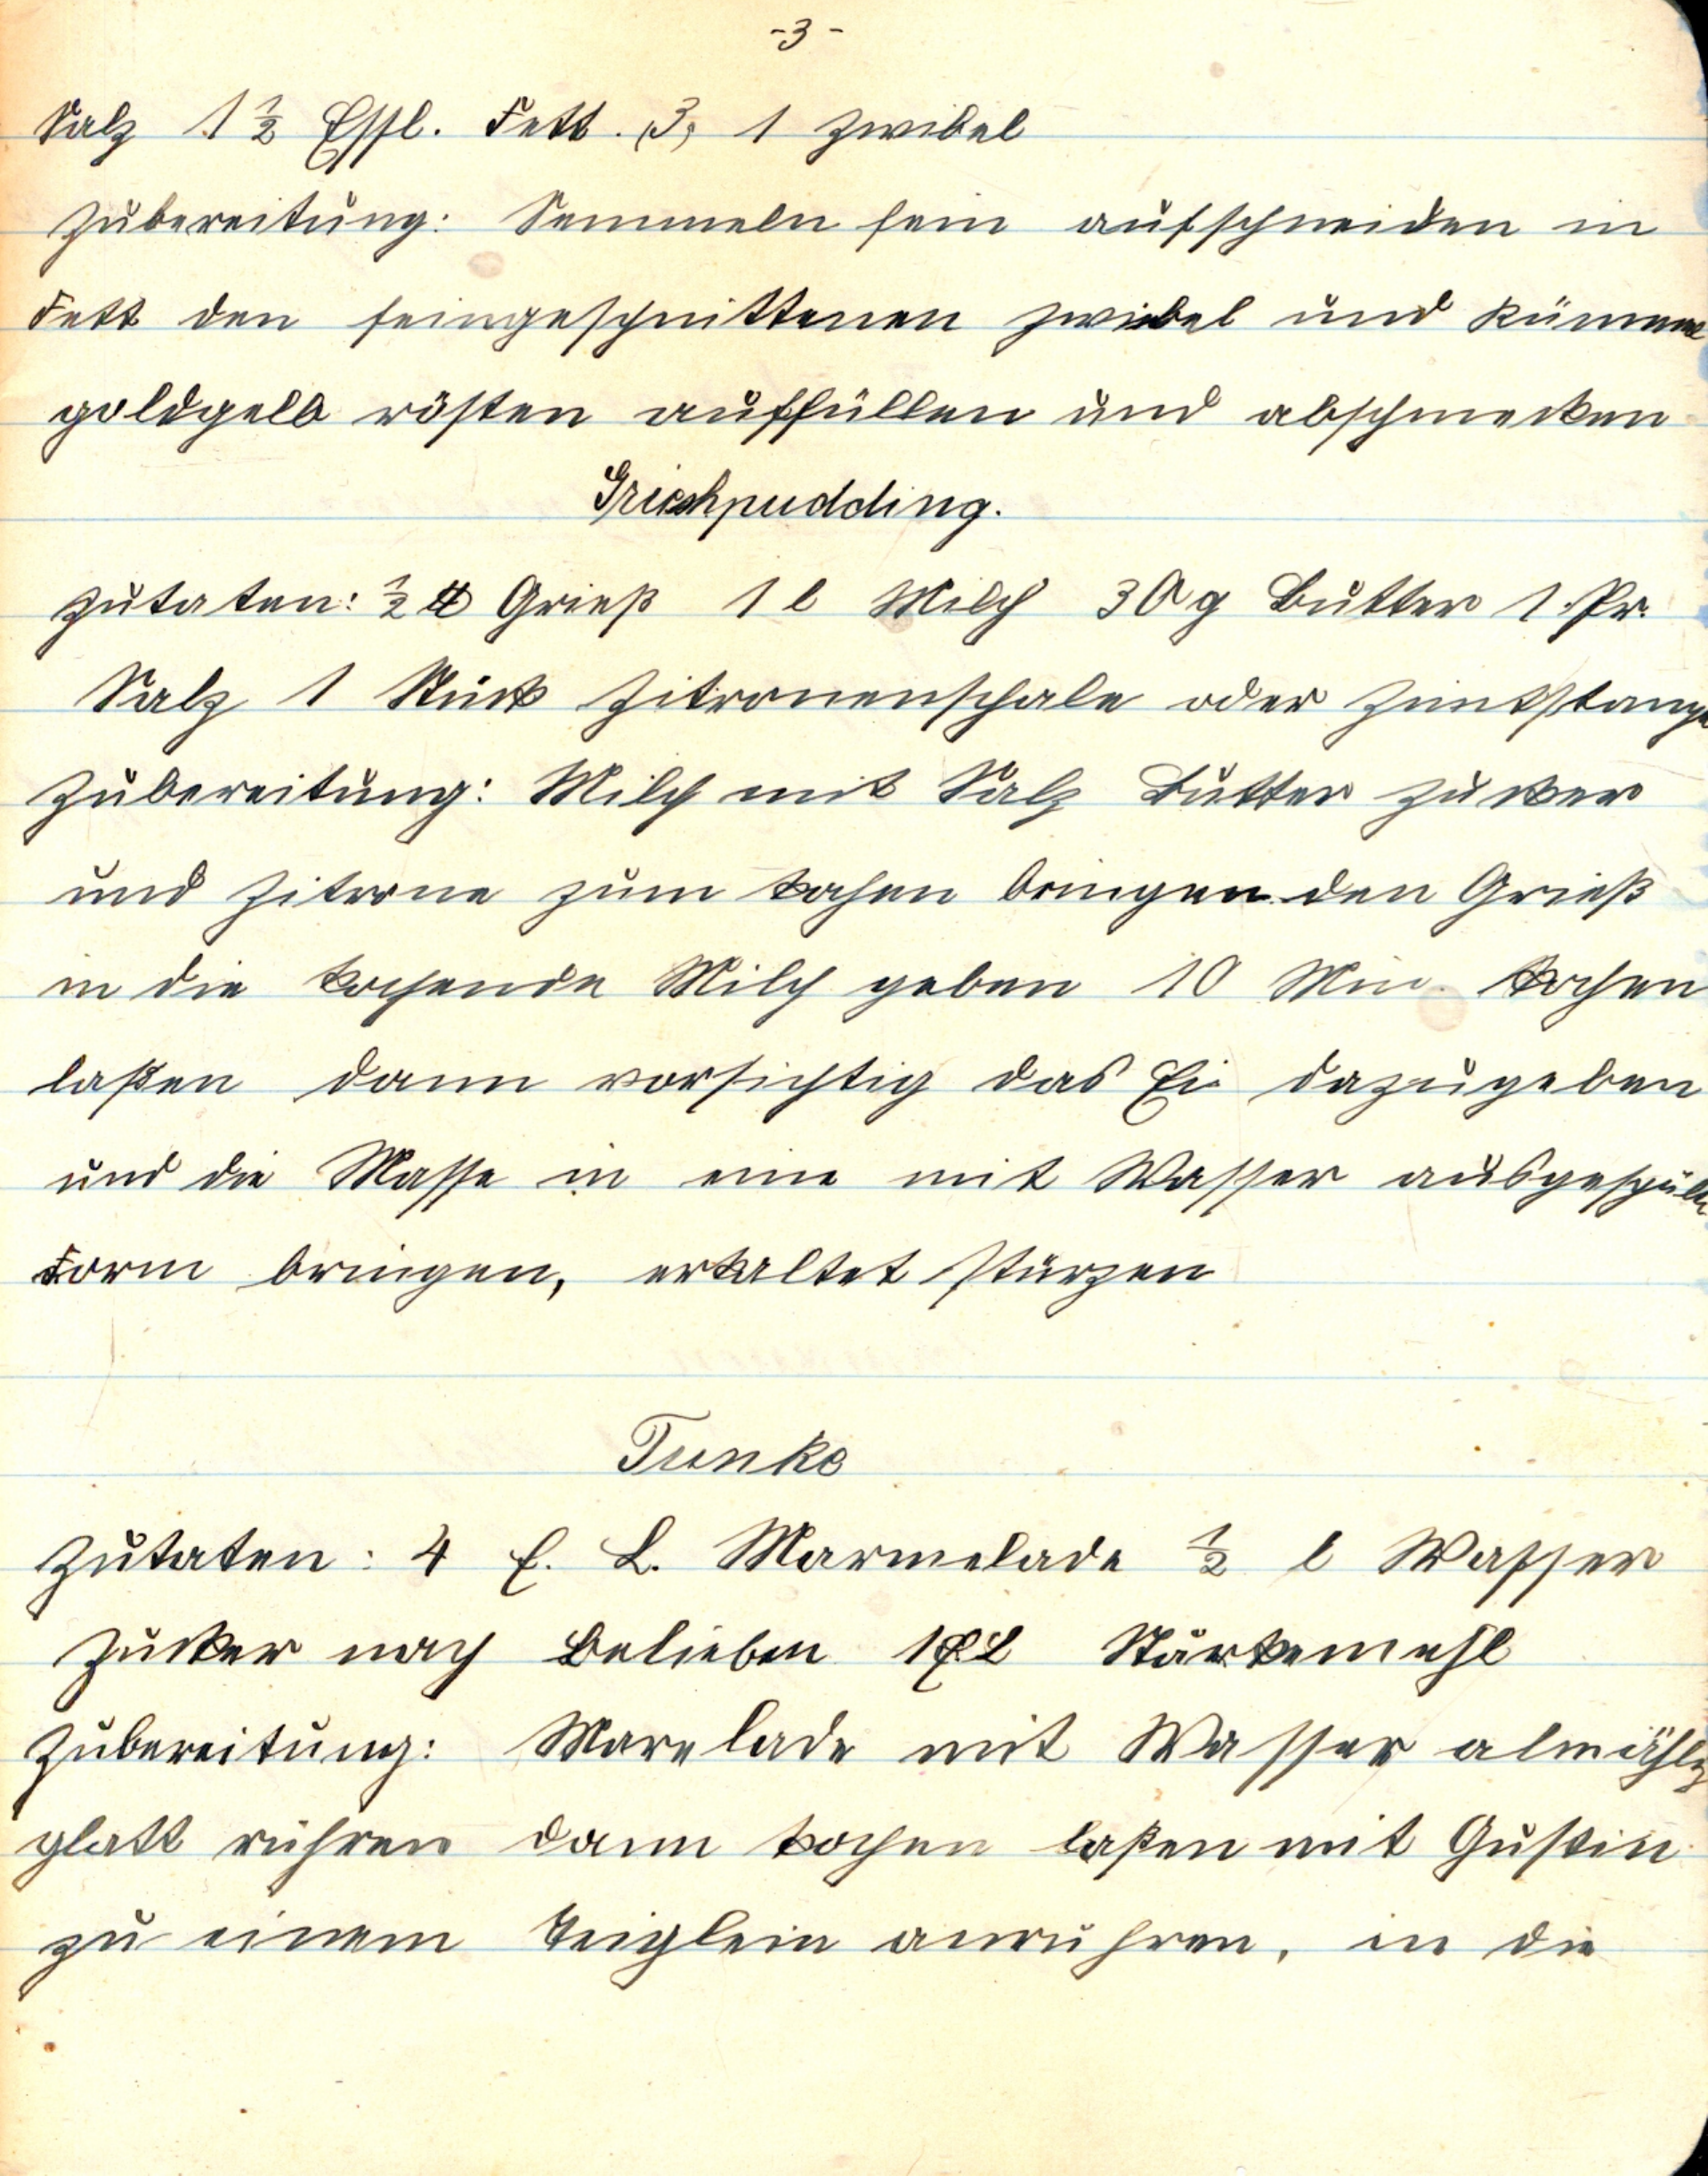 -3-
Salz 1 ½ Essl. Fett. (3) 1 Zwibel
Zubereitung: Semmeln fein aufschneiden in
Fett den feingeschnittenen Zwiebel und Kümmel
goldgelb rösten auffüllen und abschmecken
Grieshpudding.
Zutaten: ½ ℔ Grieß 1 l Milch 30 g Butter 1 Pr.
Salz 1 Stück Zitronenschale oder Zimtstange
Zubereitung: Milch mit Salz Butter Zucker
und Zitrone zum kochen bringen den Grieß
in die kochende Milch geben 10 Min. kochen
laßen dann vorsichtig das Ei dazugeben
und die Masse in eine mit Wasser ausgespülte
Form bringen, erkaltet stürzen
Tunke
Zutaten: 4 E. L. Marmelade ½ l Wasser
Zucker nach Belieben 1 E L Stärkemehl
Zubereitung: Marelade mit Wasser almählg
glatt rühren dann kochen laßen mit Gustin
zu einem Teiglein anrühren, in die